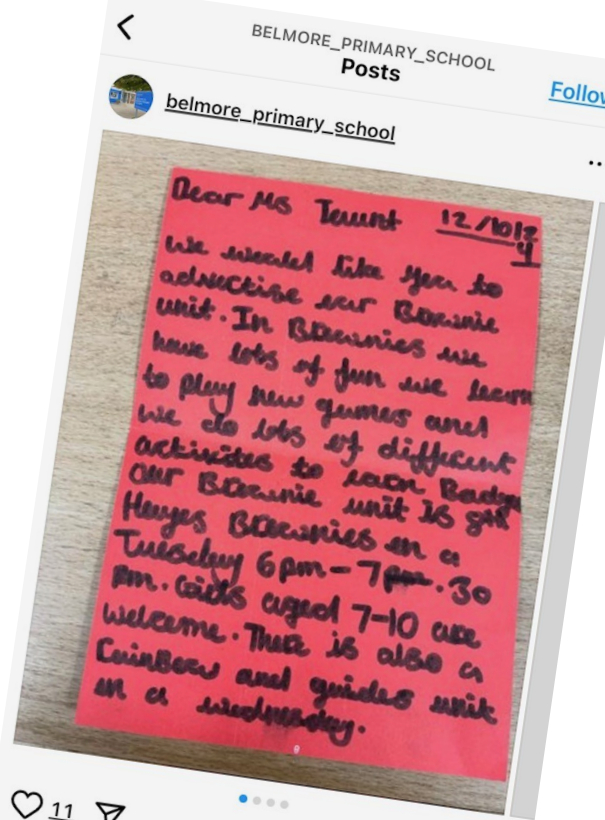 BELMORE_PRIMARY_SCHOOL
Posts
Follow
belmore_primary_school
Dear Ms 12/10/2
4
we would like you to
advertise our Brownie
unit. In Brownies we
have lots of fun we learn
to play new games and
we do lots of different
activities to earn Badge
our Brownie unit is 8th
Hayes Brownies on a
Tuesday 6pm-7pm.30
pm. Girls aged 7-10 are
welcome. There is also a
Rainbow and guides unit
on a wednesday.
11